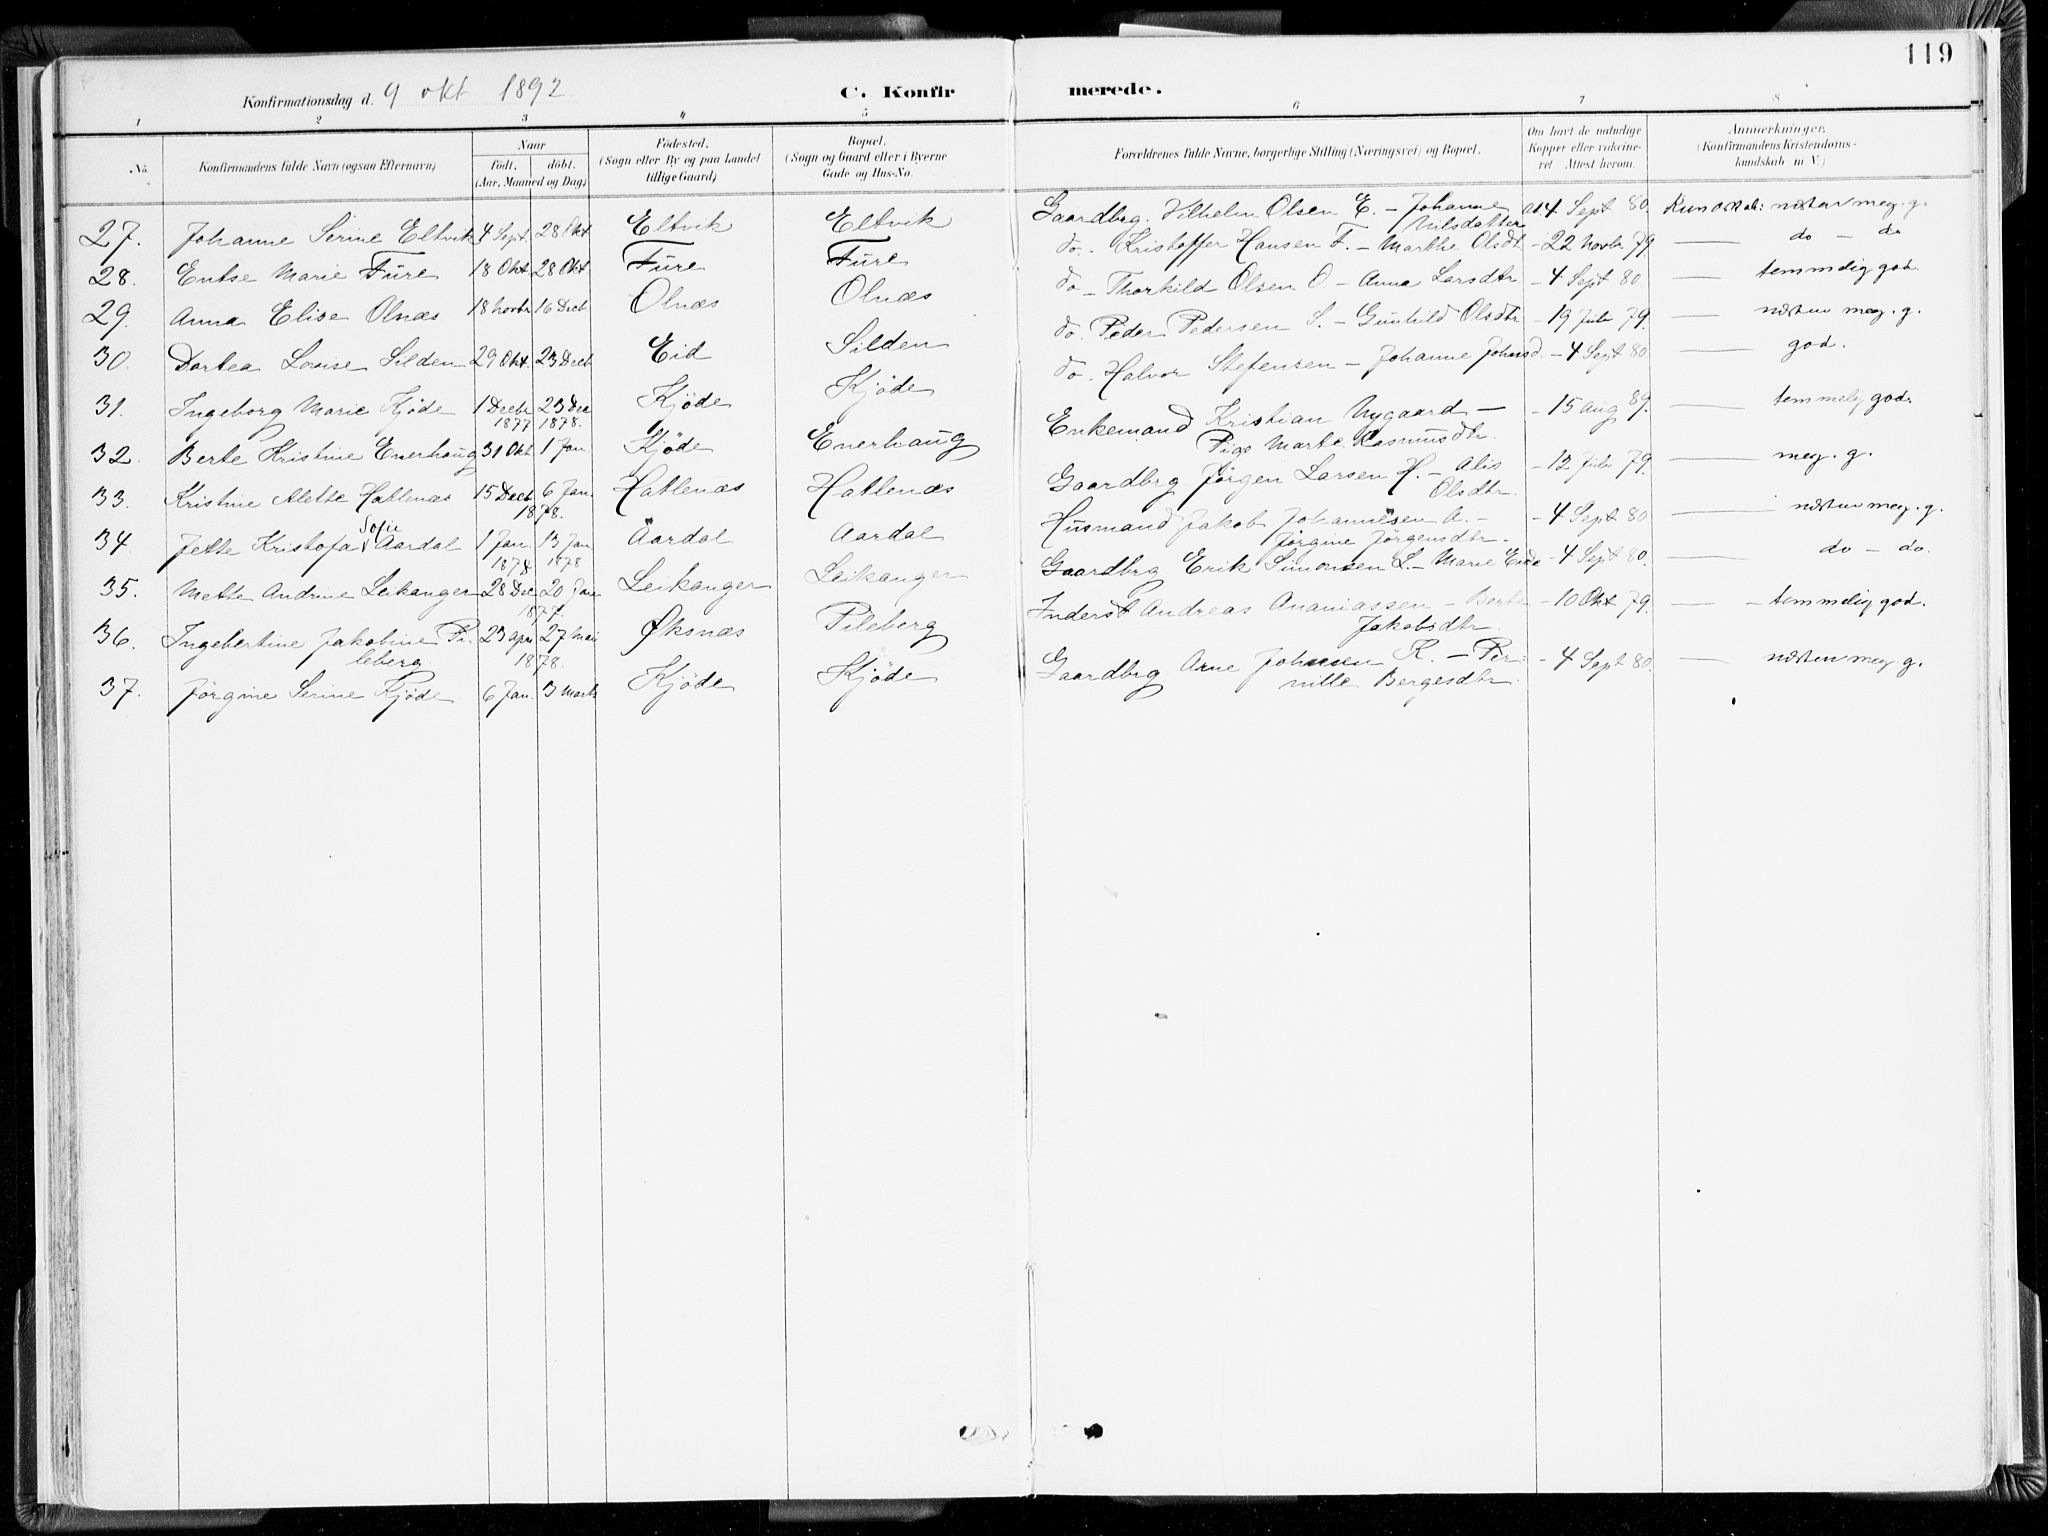 119
Konfirmationsdag d. 9 okt 1892 C. Konfirmerede.
1 2 3 4 5 6 7 8
No. Konfirmandens fulde Navn (ogsaa Efternavn) Naar født, døbt. (Aar, Maaned og Dag) Fødested. (Sogn eller By og paa Landet tillige Gaard) Bopæl. (Sogn og Gaard eller i Byerne Gade og Hus-No. Forældrenes fulde Navne, borgerlige Stilling (Næringsvei) og Bopæl. Om havt de naturlige Kopper eller vaccineret Attest herom. Anmærkninger. (Konfirmandens Kristendomskundskab m V.)
27. Johanne Serine Eltvik 4 Sept. 28 Okt Eltvik Eltvik Gaardbrg. Vilhelm Olsen E. – Johanne Nilsdatter At 4 Sept 80. Kundskab: næsten meg. g.
28. Entse Marie Fure 18 Okt 28 Okt Fure Fure do. Kristoffer Hansen F. – Marthe Olsdt – 22 Novbr 79 — do – do
29. Anna Elise Olnæs 18 Novbr 16 Decb Olnæs Olnæs do – Thorkild Olsen O – Anna Larsdtr – 4 Sept 80 — temmelig god.
30. Dortea Lovise Silden 29 Okt. 23 Decb Eid Silden do. Peder Pedersen S. – Gunhild Olsdtr – 19 Juli 79. — næsten meg. g.
31. Ingeborg Marie Kjøde 1 Decbr 1877 23 Dec 1878. Kjøde Kjøde do. Halvor Stefensen – Johanne Johnsd. – 4 Sept 80 — god.
32. Berte Kristine Enerhaug 31 Okt 1 Jan Kjøde Enerhaug Enkemand Kristian Nygaard – Pige Marte Rasmusdtr. – 15 Aug 89. — temmelig god.
33. Kristine Alette Hatlenæs 15 Decb 6 Jan. 1878. Hatlenæs Hatlenæs Gaardbrg Jørgen Larsen H. – Alis Olsdtr. – 12 Juli 79. — meg. g.
34. Jette Kristofa Sofie Aardal 1 Jan. 1878 13 Jan 1878 Aardal Aardal Husmand Jakob Johannesen A. – Jørgine Jørgensdtr. – 4 Sept 80 — næsten meg. g.
35. Mette Andrine Leikanger 28 Dec 20 Jan 1877. Leikanger Leikanger Gaardbrg Erik Simonsen L. – Marie – 4 Sept 80. — do – do.
36. Ingebertine Jakobine Pileberg 23 Apr 27 Mai 1878. Øksnæs Pileberg Inderst Andreas Ananiassen – Berte Jakobsdtr. – 10 Okt 79. — – temmelig god.
37. Jørgine Serine Kjøde 6 Jan. 3 Marts Kjøde Kjøde Gaardbrg Arne Johnsen K. – Pernille Bergesdtr. – 4 Sept 80. — næsten meg g.